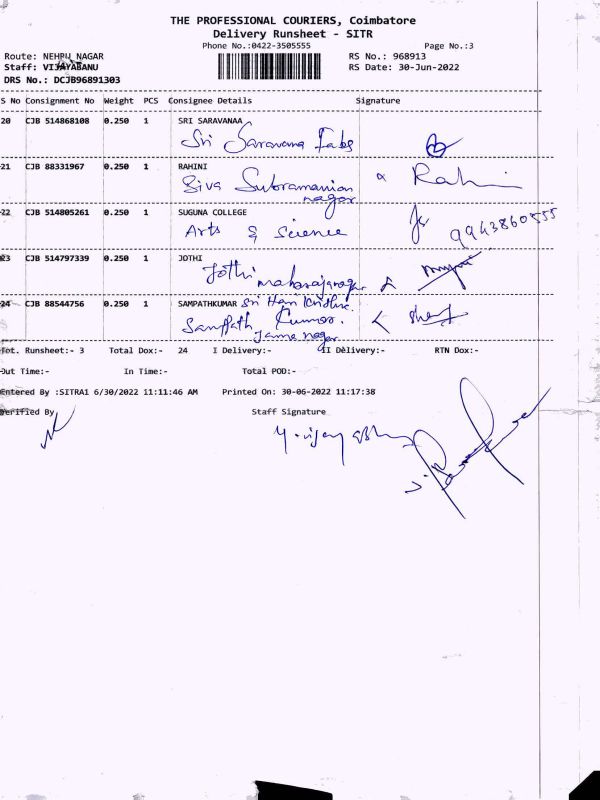 THE PROFESSIONAL COURIERS, Coimbatore
Delivery Runsheet - SITR
Phone No.:0422-3505555 Page No.:3
Route: NEHRU NAGAR RS No.: 968913
Staff: VIJAYABANU RS Date: 30-Jun-2022
DRS No.: DCJB96891303
S No Consignment No Weight PCS Consignee Details Signature
20 CJB 514868108 0.250 1 SRI SARAVANAA
Sri Saravana Fabs
21 CJB 88331967 0.250 1 RAHINI
Siva Subramanian Rahini
nagar
22 CJB 514805261 0.250 1 SUGUNA COLLEGE
Arts & Science 9943860555
23 CJB 514797339 0.250 1 JOTHI
Jothi maharajanagar
24 CJB 88544756 0.250 1 SAMPATHKUMAR Sri Hari
Sampath Kumar.
nagar
Tot. Runsheet:- 3 Total Dox:- 24 I Delivery:- II Delivery:- RTN Dox:-
Out Time:- In Time:- Total POD:-
Entered By :SITRA1 6/30/2022 11:11:46 AM Printed On: 30-06-2022 11:17:38
Verified By Staff Signature